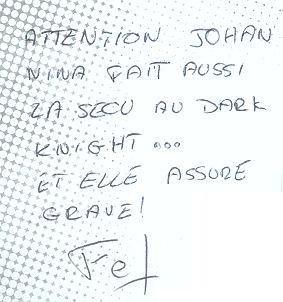 ATTENTION JOHAN
NINA FAIT AUSSI
LA SECU AU DARK
KNIGHT...
ET ELLE ASSURE
GRAVE!
Fet